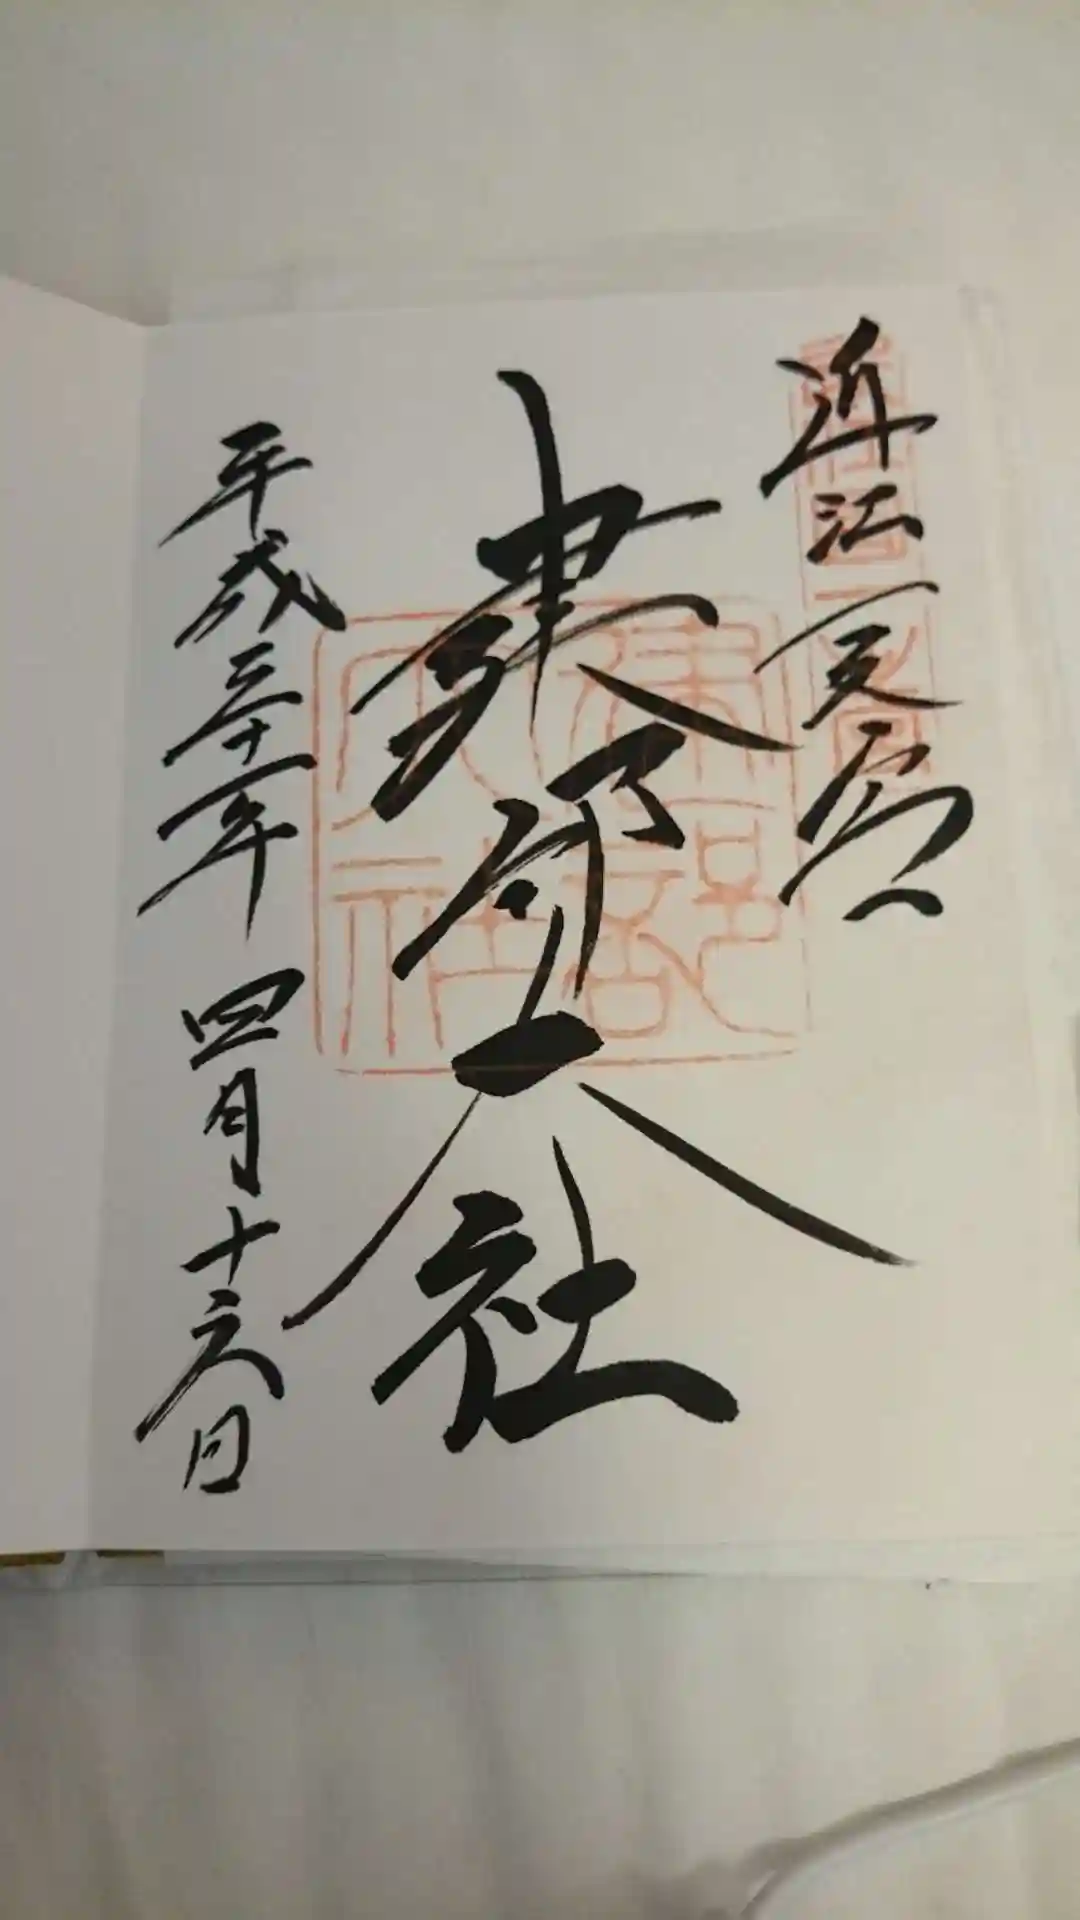 近江一之宮
建部大社
平成三十一年四月十六日
建部
大社